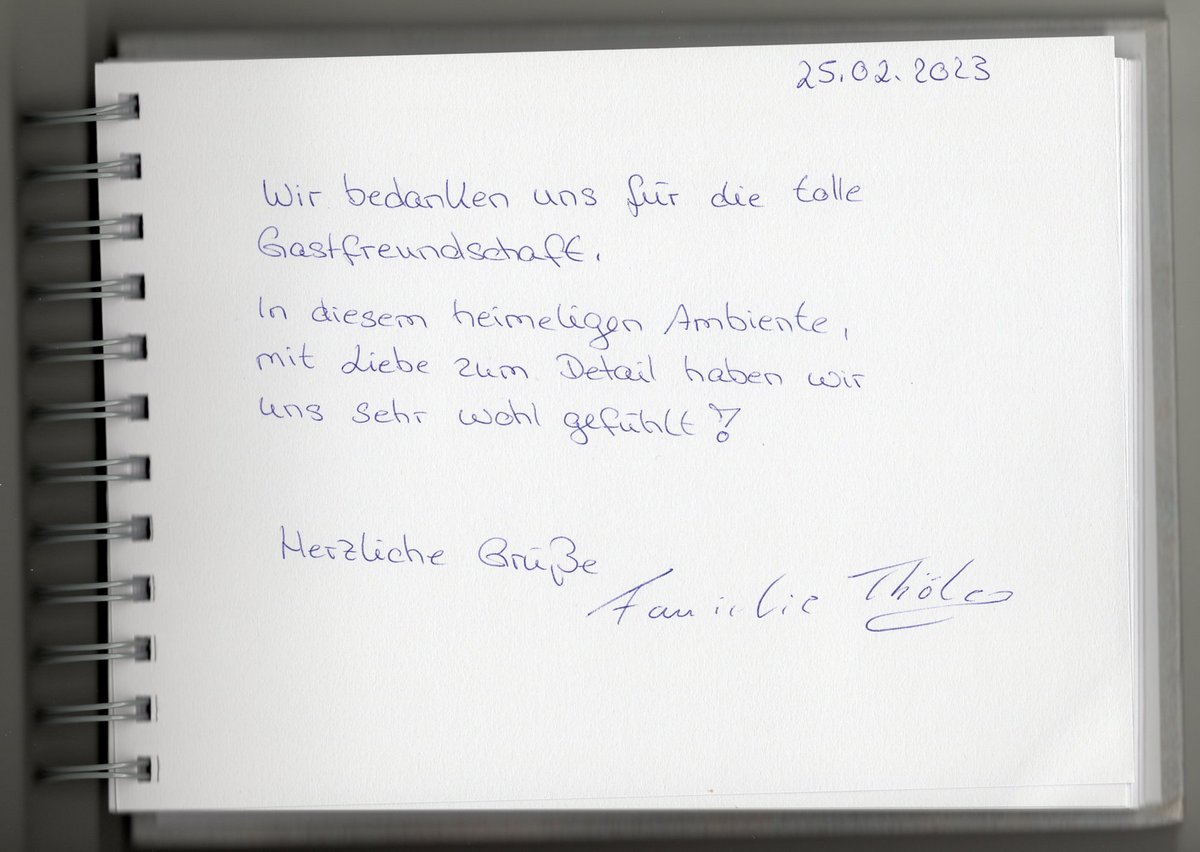 25.02.2023
Wir bedanken uns für die tolle
Gastfreundschaft.
In diesem heimeligen Ambiente,
mit Liebe zum Detail haben wir
uns sehr wohl gefühlt!
Herzliche Grüße
Familie